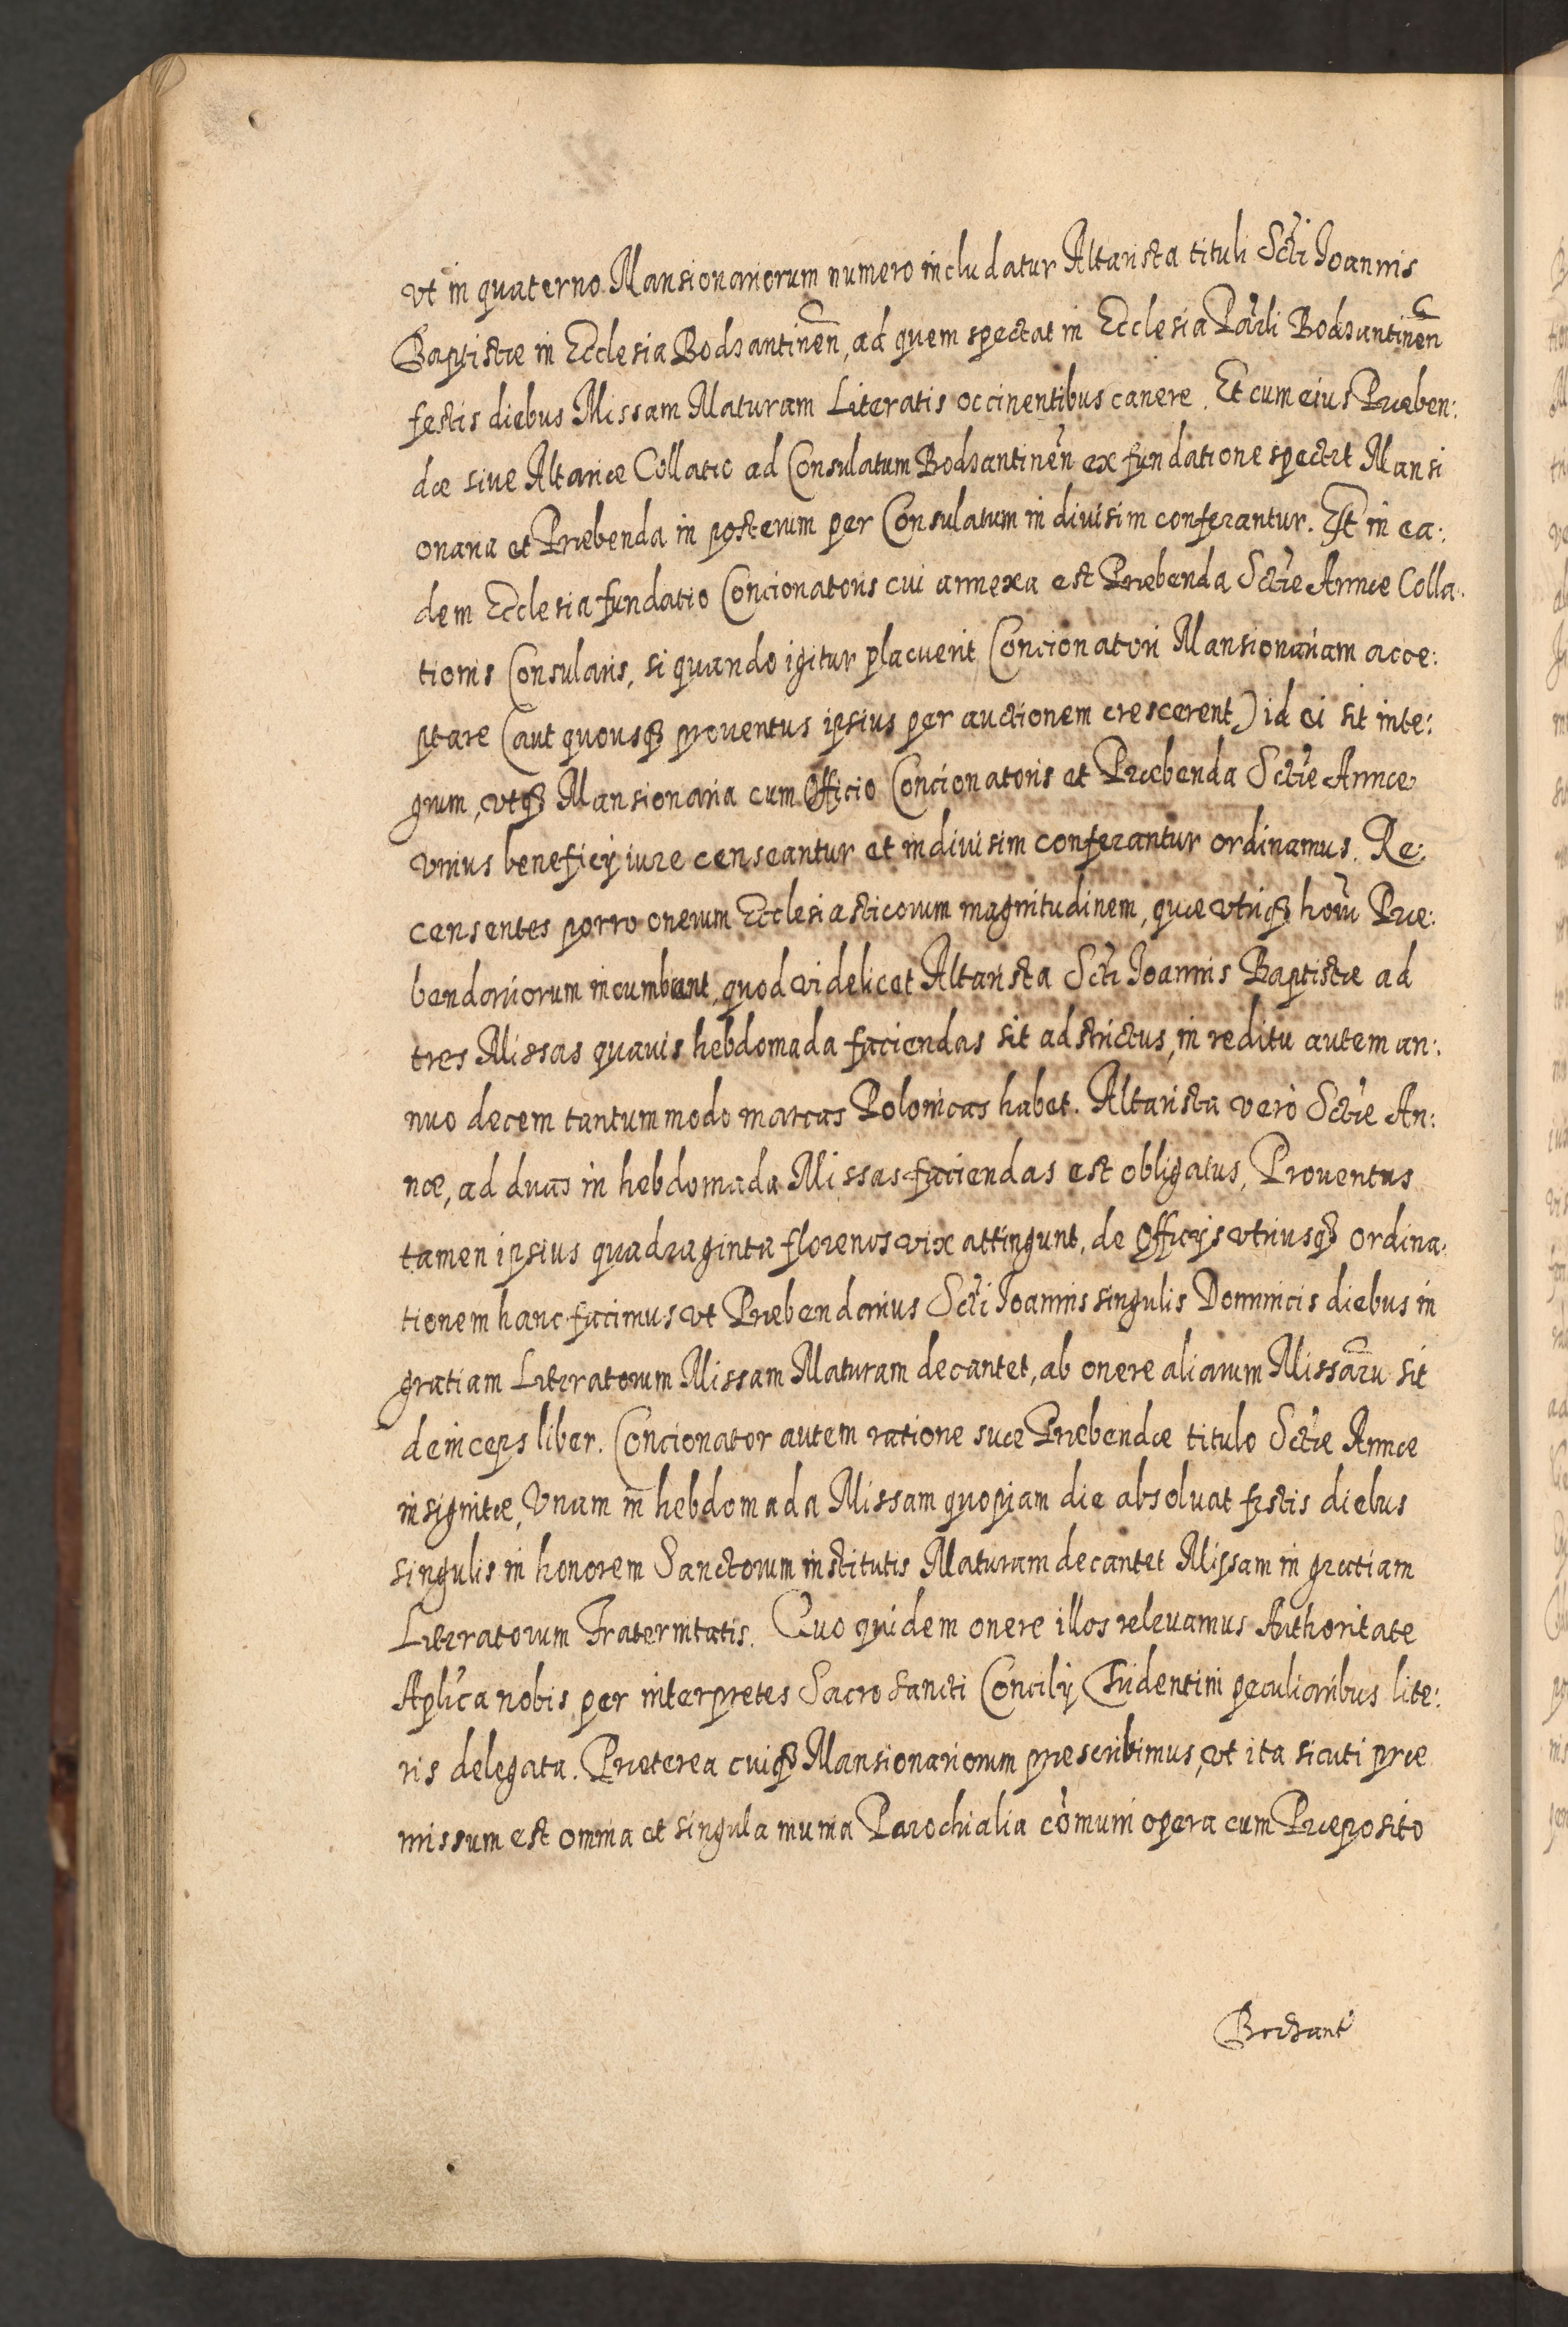 vt in quaterno Mansionariorum numero includatur Altarista tituli Scti Joannis
Baptistæ in Ecclesia Bodzantinen̄, ad quem spectat in Ecclesia Parli Bodzantinen̄
festis diebus Missam Maturam Literatis occinentibus canere. Et cum eius Præben:
dæ siue Altariæ Collatio ad Consulatum Bodzantinen̄ ex fundatione spectet Mansi
onaria et Præbenda in posterum per Consulatum indiuisim conferantur. Est in ea:
dem Ecclesia fundatio Concionatoris cui annexa est Præbenda Sctæ Annæ Colla:
tionis Consularis, si quando igitur placuerit Concionatori Mansionariam acce:
ptare (aut quousqȝ prouentus ipsius per auctionem crescerent) id ei sit inte:
grum, vtqȝ Mansionaria cum Officio Concionatoris et Præbenda Sctæ Annæ
vnius beneficÿ iure censeantur et indiuisim conferantur ordinamus. Re:
censentes porro onerum Ecclesiasticorum magnitudinem, quæ vtriqȝ horū Præ:
bendariorum incumbunt, quod videlicet Altarista Scti Joannis Baptistæ ad
tres Missas quauis hebdomada faciendas sit adstrictus, in reditu autem an:
nuo decem tantummodo marcas Polonicas habet. Altarista verò Sctæ An:
næ, ad duas in hebdomada Missas faciendas est obligatus, Prouentus
tamen ipsius quadraginta florenos vix attingunt, de Officÿs vtriusqȝ ordina:
tionem hanc facimus vt Præbendarius Scti Joannis singulis Dominicis diebus in
gratiam Literatorum Missam Maturam decantet, ab onere aliarum Missarū sit
deinceps liber. Concionator autem ratione suæ Præbendæ titulo Sctæ Annæ
insignitæ, Vnam in hebdomada Missam quopiam die absoluat festis diebus
singulis in honorem Sanctorum institutis Maturam decantet Missam in gratiam
Literatorum Fraternitatis. Quo quidem onere illos releuamus Authoritate
Aplica nobis per interpretes Sacro Sancti Concilÿ Tridentini peculiaribus lite:
ris delegata. Præterea cuiqȝ Mansionariorum præscribimus, vt ita sicuti præ
missum est omnia et singula munia Parochialia cōmuni opera cum Præposito
Bodzant